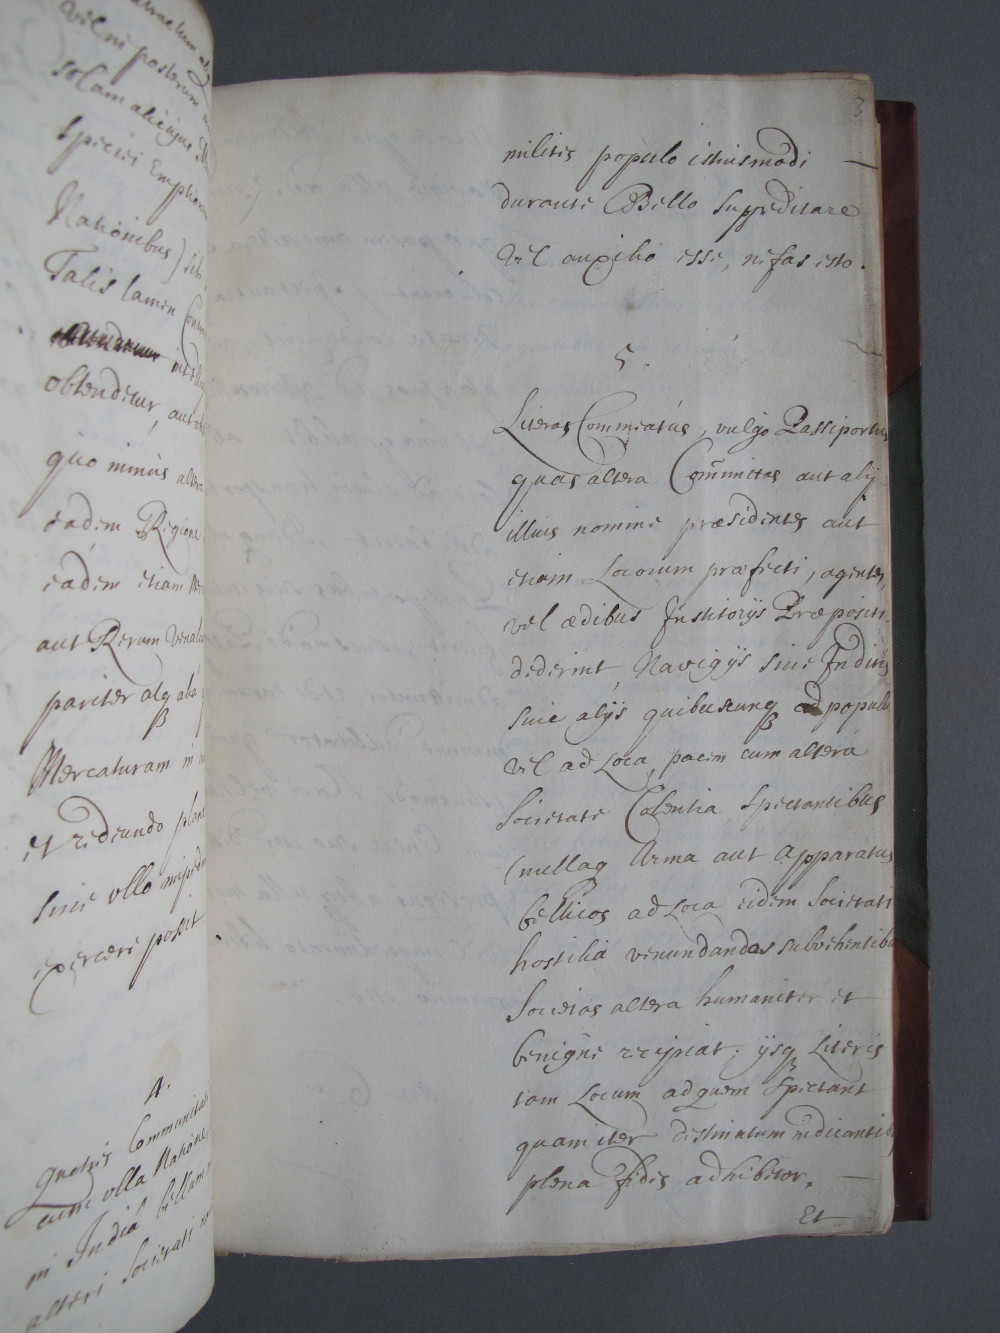 vel in posterum
solam alicujus
Speciei Emption
Nationibus) sibi
Talis tamen
obtenditur, aut
quo minùs altera
eâdem Regione
eâdem etiam
aut Rerum Venal
pariter atq alia
Mercaturam in
et redeundo plane
sine ullo impedi
exerceri possit
4.
Quotiés Communitati
cum ulla Natione
in Indiâ bellum
alteri Societati
3
militis populo istiusmodi
durante Bello suppeditare
vel auxilio esse, nefas esto.
5.
Literas Commeatûs, vulgo Passiportus
quas altera Com̃unitas aut alij
illius nomine præsidentes aut
etiam Locorum præfecti, agentes,
vel ædibus Institorijs Præpositi,
dederint, Navigijs sive Indicis
sive alijs quibuscunq ad populu
vel ad Loca, pacem cum alterâ
Societate Colentia, Spectantibus
(nullaq Arma aut Apparatus
bellicos ad Loca eidem Societati
hostilia venundandos subvehentibus
Societas altera humaniter et
benigne recipiat; ijsq Literis
tam Locum ad quem Spectant
quam iter destinatum indicantib
plena fides adhibetor.
Et